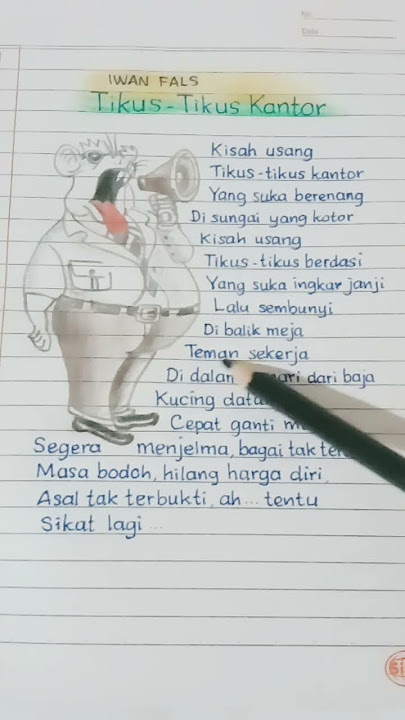 No.
Date.
IWAN FALS
Tikus-Tikus Kantor
Kisah usang
Tikus-tikus kantor
Yang suka berenang
Di sungai yang kotor
Kisah usang
Tikus-tikus berdasi
Yang suka ingkar janji
Lalu sembunyi
Di balik meja
Teman sekerja
Di dalam dari baja
Kucing
Cepat ganti
Segera menjelma, bagai tak
Masa bodoh, hilang harga diri,
Asal tak terbukti, ah... tentu
Sikat lagi ...